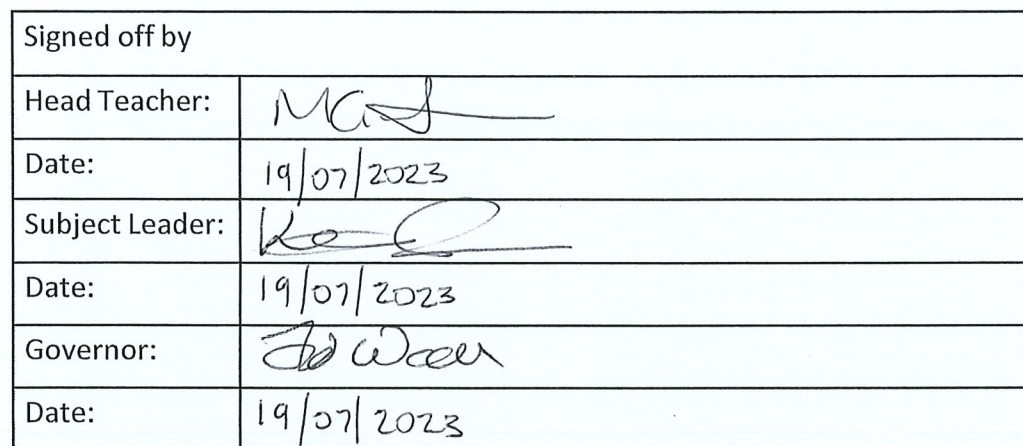 Signed off by
Head Teacher:
Date: 19/07/2023
Subject Leader:
Date: 19/07/2023
Governor:
Date: 19/07/2023